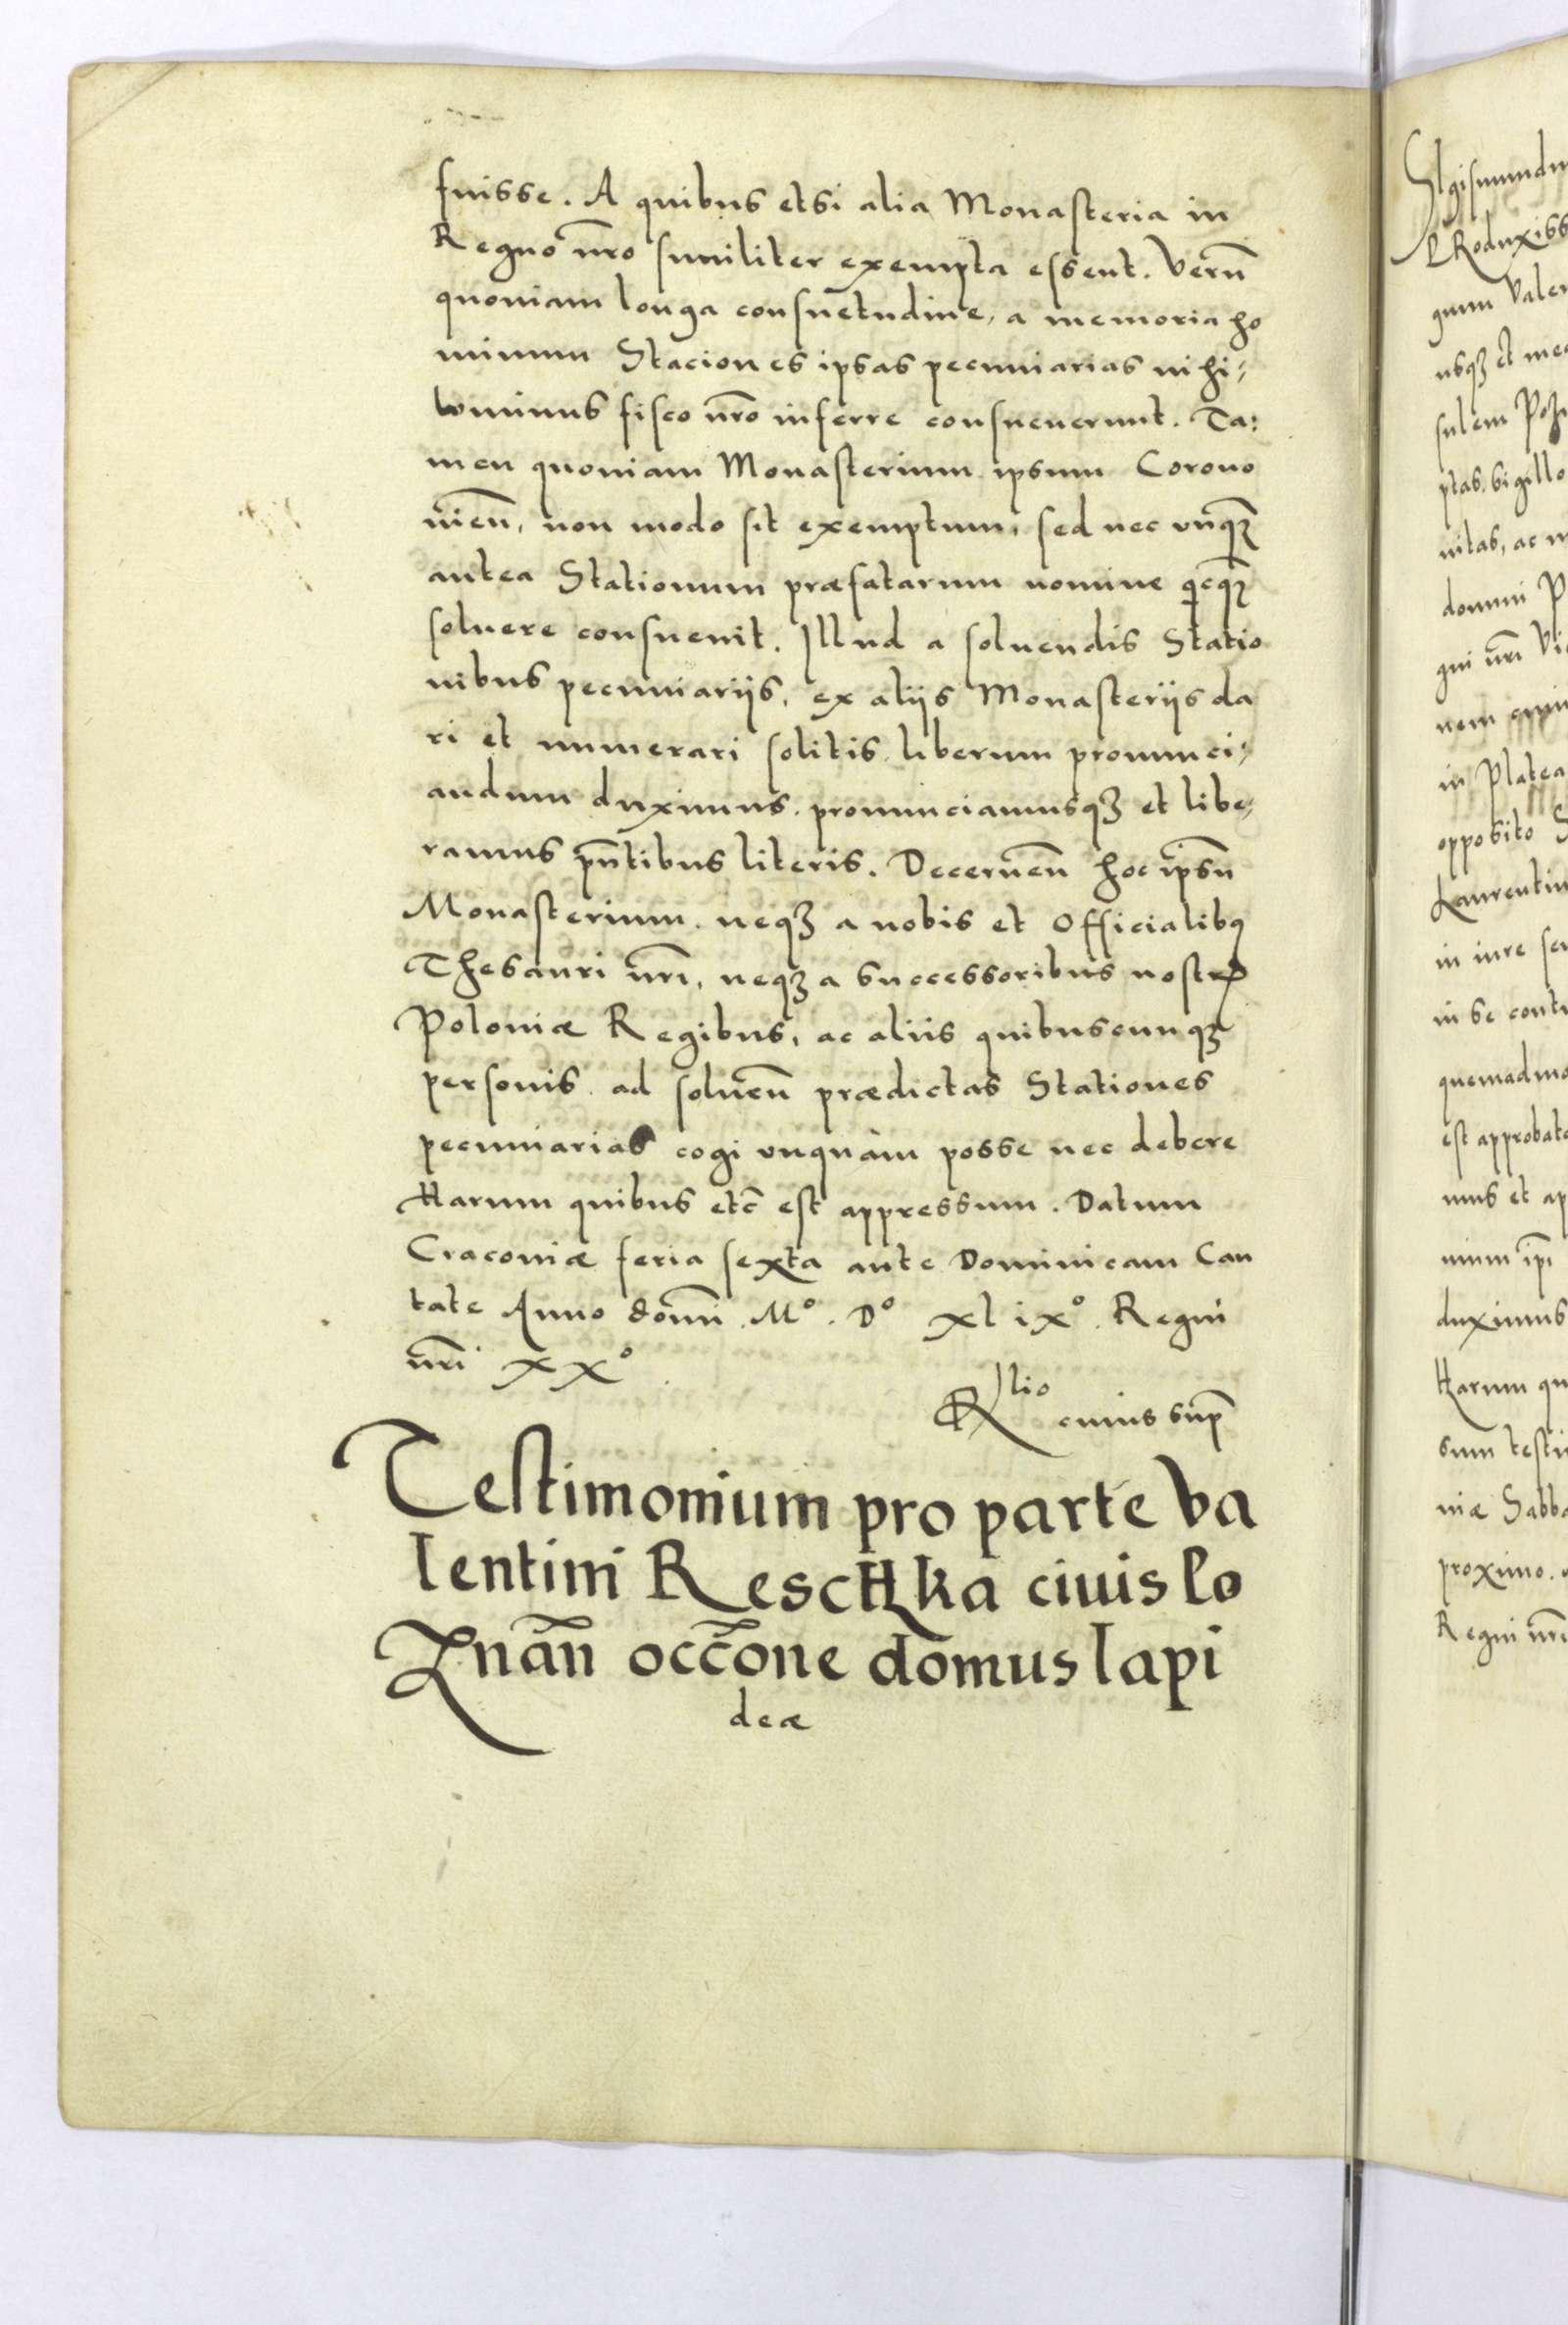 fuisse. A quibus etsi alia Monasteria in
Regno nr̃o similiter exempta essent. Verũ
quoniam longa consuetudine, a memoria ho
minum Staciones ipsas pecuniarias nihi⸗
lominus fisco nr̃o inferre consueuerunt. Ta:
men quoniam Monasterium ipsum Corono
uieñ, non modo sit exemptum, sed nec vnqꝫ
antea Stationum præfatarum nomine qicqꝫ
soluere consueuit. Illud a soluendis Statio
nibus pecuniariis, ex aliis Monasteriis da
ri et numerari solitis liberum pronunci⸗
andum duximus. pronunciamusqꝫ et libe⸗
ramus pñtibus literis. Decerneñ hoc ipsũ
Monasterium. neqꝫ a nobis et Officialibꝰ
Thesauri nr̃i, neqꝫ a successoribus nostrꝭ
Poloniæ Regibus, ac aliis quibuscunqꝫ
personis ad solueñ prædictas Stationes
pecuniarias cogi vnquàm posse nec debere
Harum quibus etc̃ est appressum. Datum
Cracouiæ feria sexta ante Dominicam Can
tate Anno domĩ. M°. D° xlix°. Regni
nr̃i xx°
Rlio cuius sup̃
Testimonium pro parte Va
lentini Reschka ciuis Po
Znañ occõne domus lapi
deæ
Sigismundu
PRoduxiss
gnum Valen
usqꝫ et me
sulem Poz
ptas, sigillo
nitas, ac
domini P
gni nr̃i Vi
nem
in Platea
opposito S
Laurentiu
in iure
in se cont
quemadmo
est approbat
mus et ap
nium ip̃i
duximus
Harum qu
sum testi
niæ Sabba
proximo.
Regni nr̃i